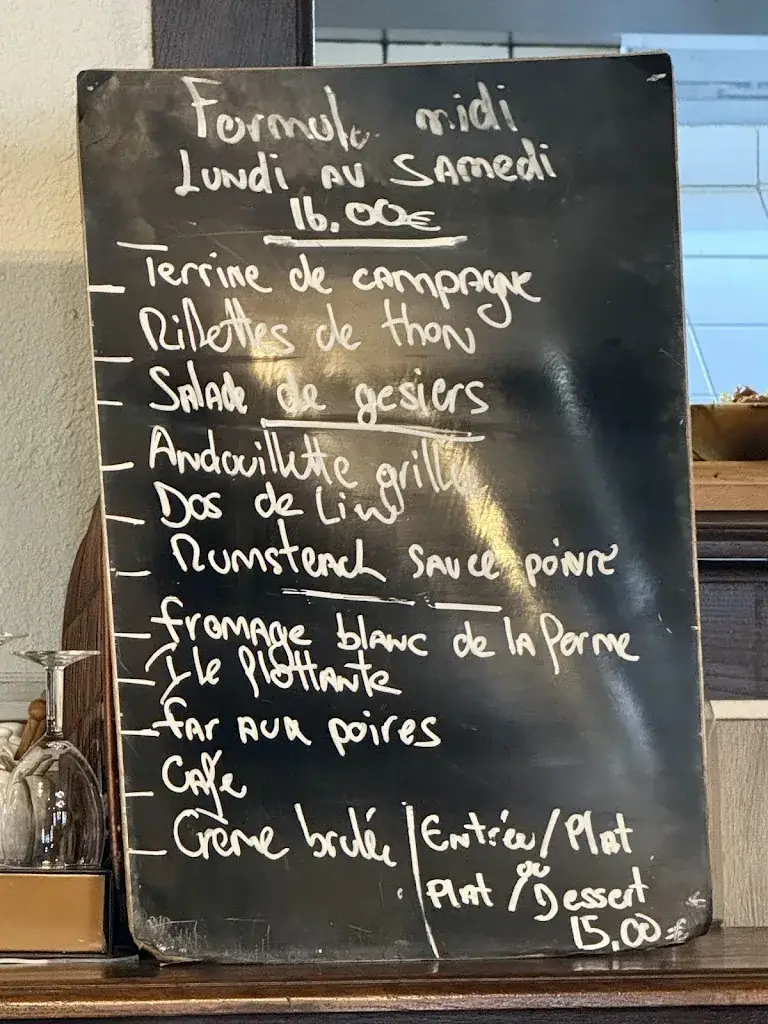 Formule midi
Lundi au Samedi
16.00€
Terrine de campagne
Rillettes de thon
Salade de gesiers
Andouillette grillée
Dos de Lieu
Rumsteack sauce poivre
fromage blanc de la ferme
Ile flottante
far aux poires
Café
Crème brulée
Entrée / Plat
ou
Plat / Dessert
15,00€